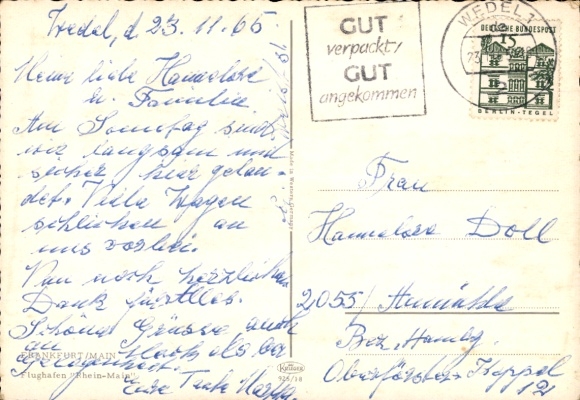 Wedel, d 23.11.65
Meine liebe Hannelore
u. Familie
Am Sonntag sind
wir langsam und
sicher hier gelan-
det. Viele Wagen
schlichen an
uns vorbei.
Nun noch herzlichen
Dank für alles.
Schöne Grüsse auch
an
Eure Tante
FRANKFURT/MAIN
Flughafen "Rhein-Main"
Made in Western-Germany
Krüger
925/38
GUT
verpackt,
GUT
angekommen
WEDEL
DEUTSCHE BUNDESPOST
15
BERLIN-TEGEL
Frau
Hannelore Doll
2055/ Aumühle
Bez. Hambg.
Oberförster-Koppel
12